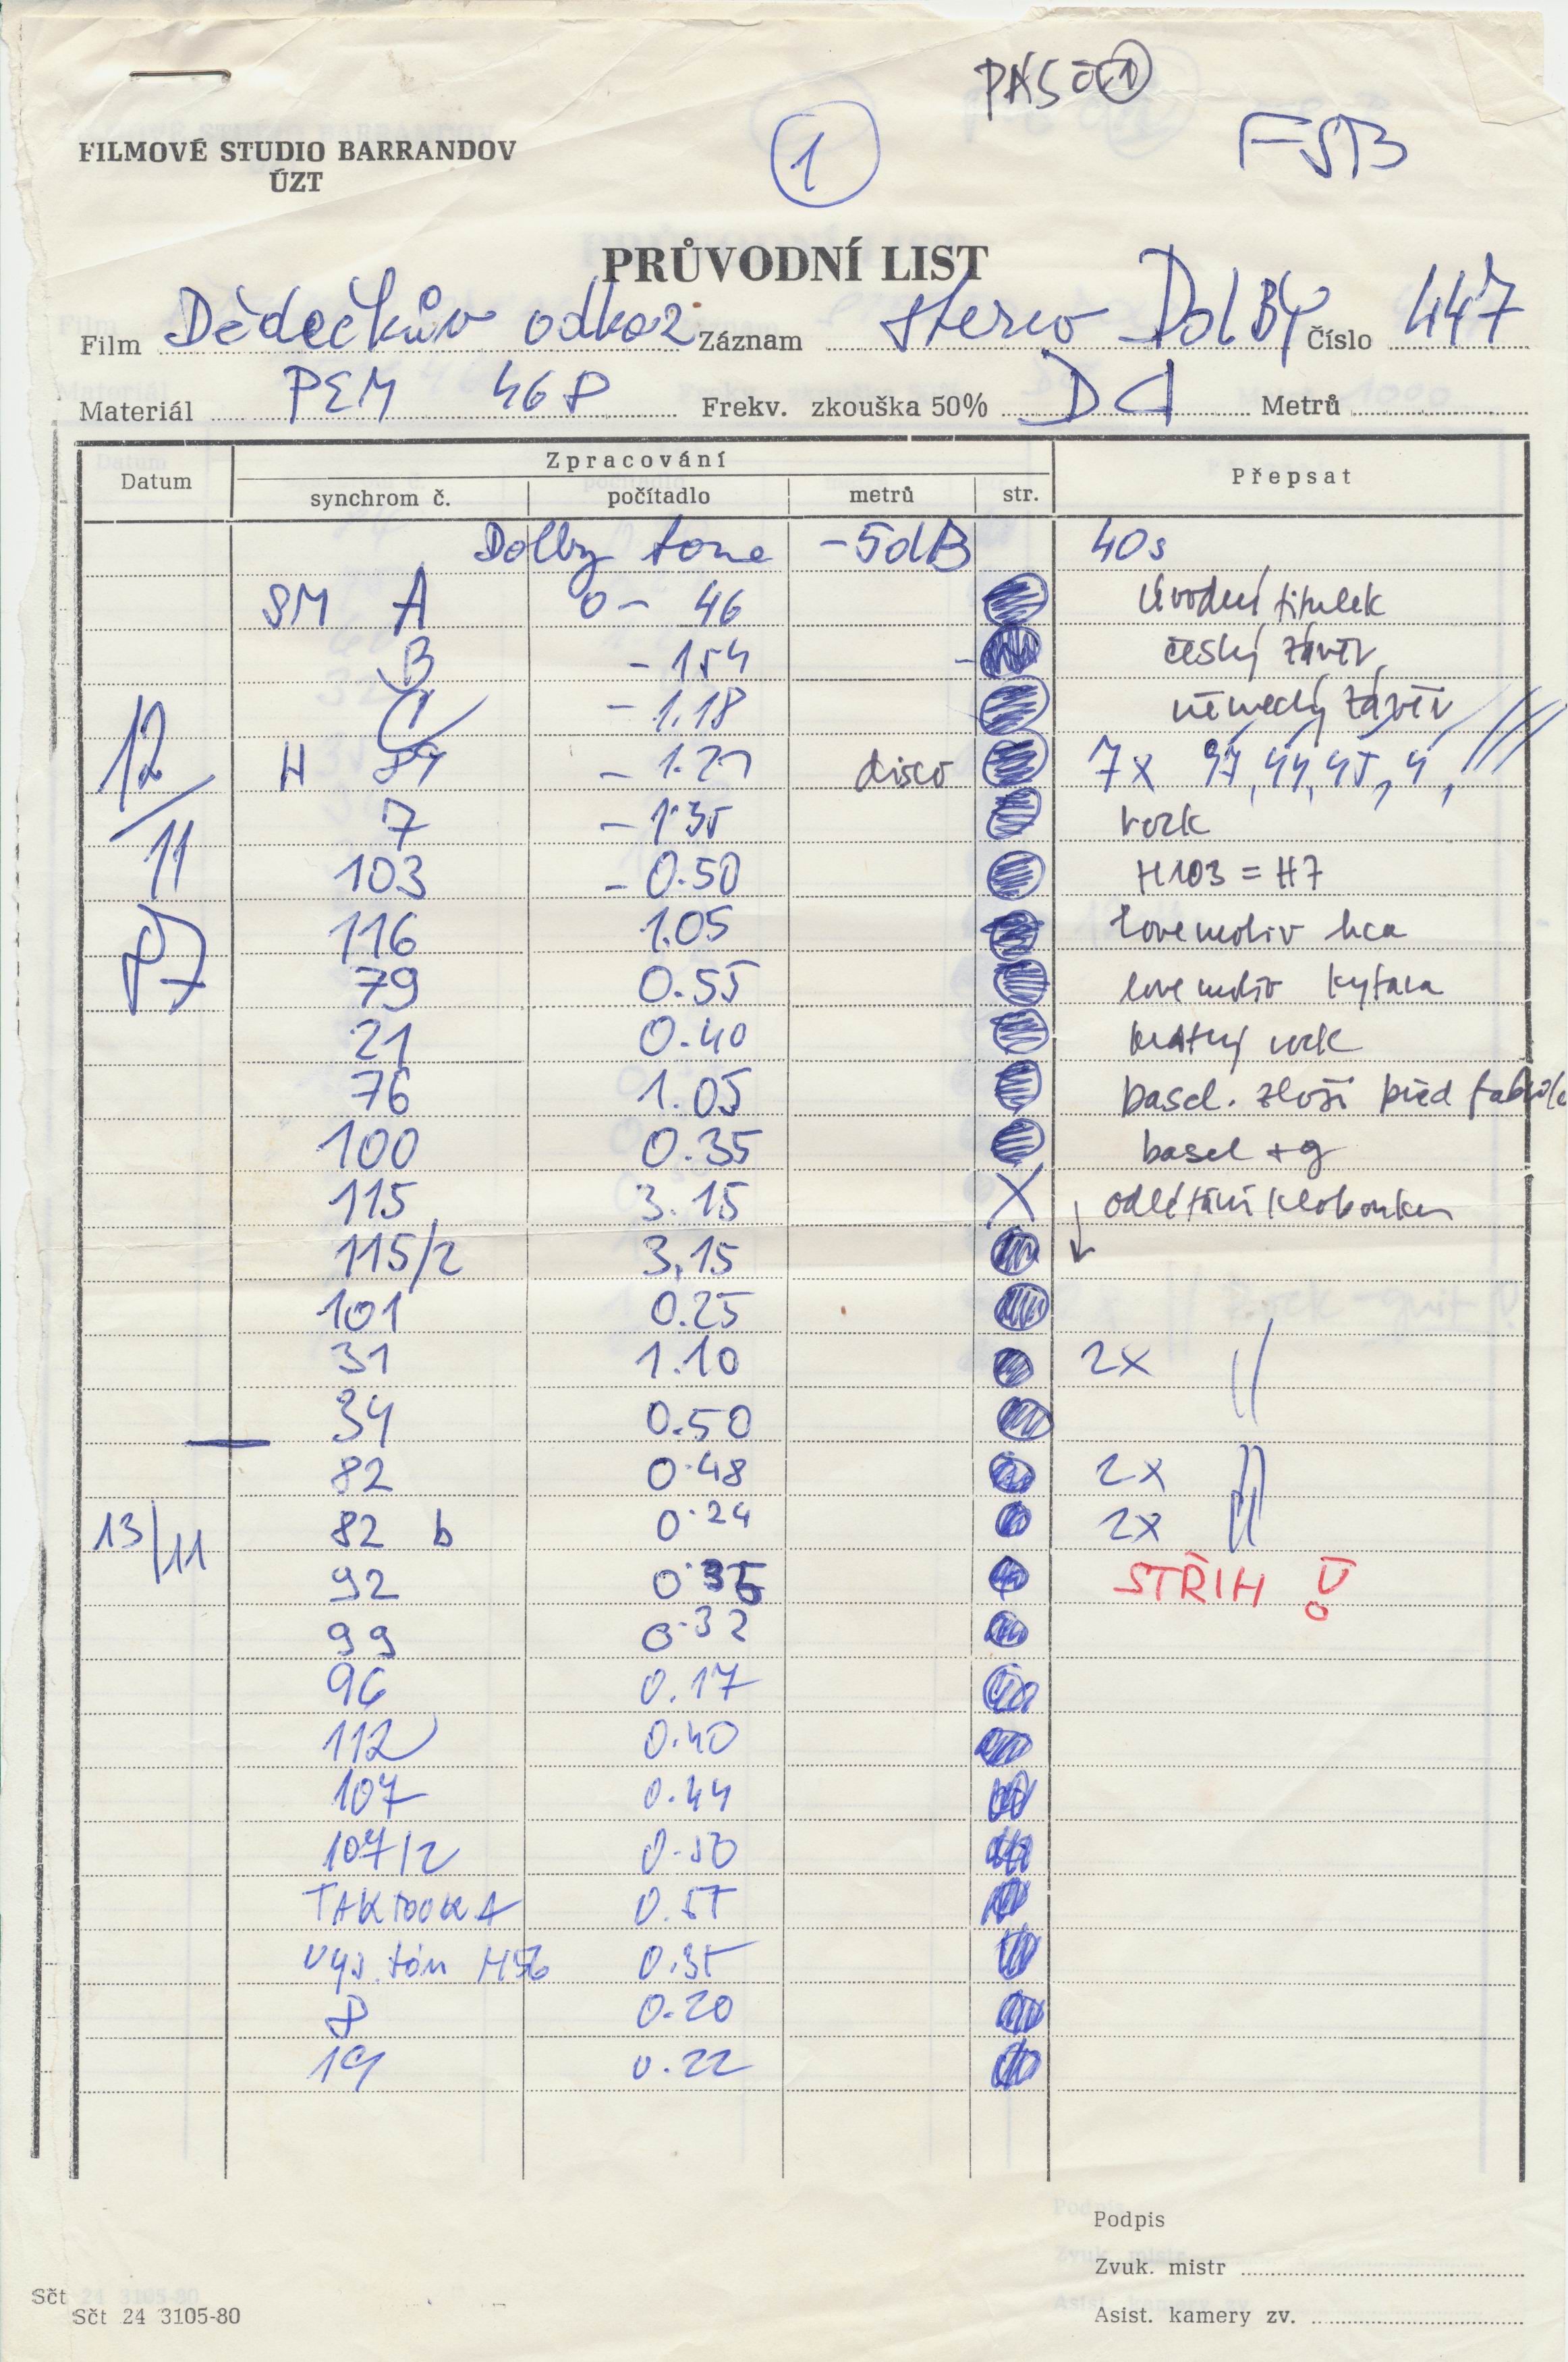 PÁS č. 1
1
FSB
FILMOVÉ STUDIO BARRANDOV
ÚZT
PRŮVODNÍ LIST
Film Dědečkův odkaz Záznam stereo DOLBY Číslo 447
Materiál PEM 468 Frekv. zkouška 50% Metrů
Datum Zpracování Přepsat
synchrom č. počítadlo metrů str.
Dolby tone -5dB 40s
SM A 0 - 46 Úvodní titulek
B - 154 český závěr
C - 1.18 německý závěr
12/11 87
H 84 - 1.21 disco 7x
7 - 1.35 rock
103 - 0.50 H103 = H7
116 1.05 love motiv hca
79 0.55 love motiv kytara
21 0.40 krátký rock
76 1.05 basel. zloži před
100 0.35 basel + g
115 3.15 X odlétání klobouku
115/2 3.15
101 0.25
31 1.10 2x
34 0.50
82 0.48 2x
13/11 82 b 0.24 2x
92 0.35 STŘIH !
99 0.32
96 0.17
112 0.40
107 0.44
107/2 0.50
TAKTOVKA 0.57
vys. tón H56 0.35
8 0.20
19 0.22
Podpis
Zvuk. mistr
Asist. kamery zv.
Sčt
Sčt 24 3105-80